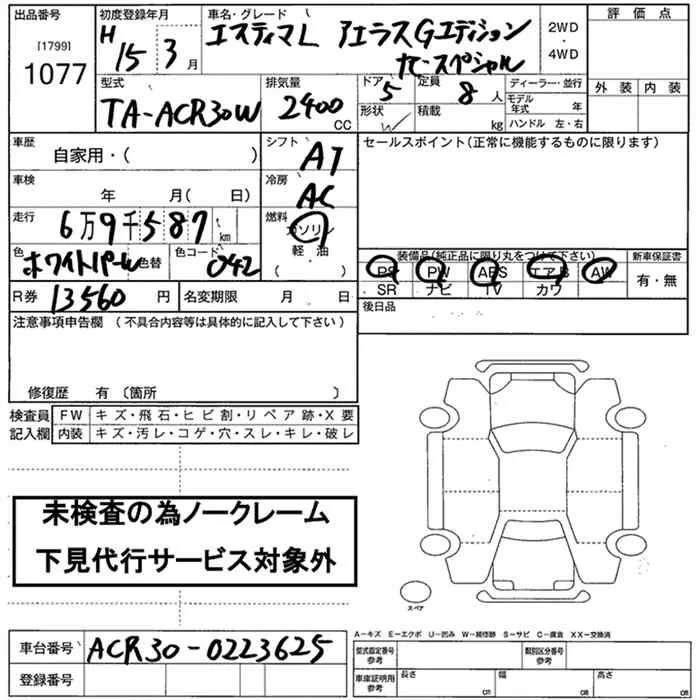 出品番号
[1799]
1077
初度登録年月
H 15 3 月
車名・グレード
エスティマL アエラスGエディション
ナビスペシャル
2WD
・
4WD
評価点
外装 内装
型式
TA-ACR30W
排気量
2400 CC
ドア
5
形状
定員
8 人
積載
kg
ディーラー・並行
モデル年式 年
ハンドル 左・右
車歴
自家用・( )
シフト
AT
セールスポイント(正常に機能するものに限ります)
車検
年 月( 日)
冷房
AC
走行
6万9千587 km
燃料
ガソリン
軽・油
色
ホワイトパール
色替
色コード
042
( )
装備品(純正品に限り丸をつけて下さい)
PS PW ABS エアB AW
SR ナビ TV カワ
新車保証書
有・無
R券 13560 円
名変期限 月 日
後日品
注意事項申告欄 (不具合内容等は具体的に記入して下さい)
修復歴 有 〔箇所 〕
検査員
記入欄
FW キズ・飛石・ヒビ割・リペア跡・X要
内装 キズ・汚レ・コゲ・穴・スレ・キレ・破レ
未検査の為ノークレーム
下見代行サービス対象外
スペア
車台番号 ACR30-0223625
登録番号
A-キズ E-エクボ U-凹み W-補修跡 S-サビ C-腐食 XX-交換済
型式指定番号
参考
類別区分番号
参考
車庫証明用
参考
長さ cm
幅 cm
高さ cm